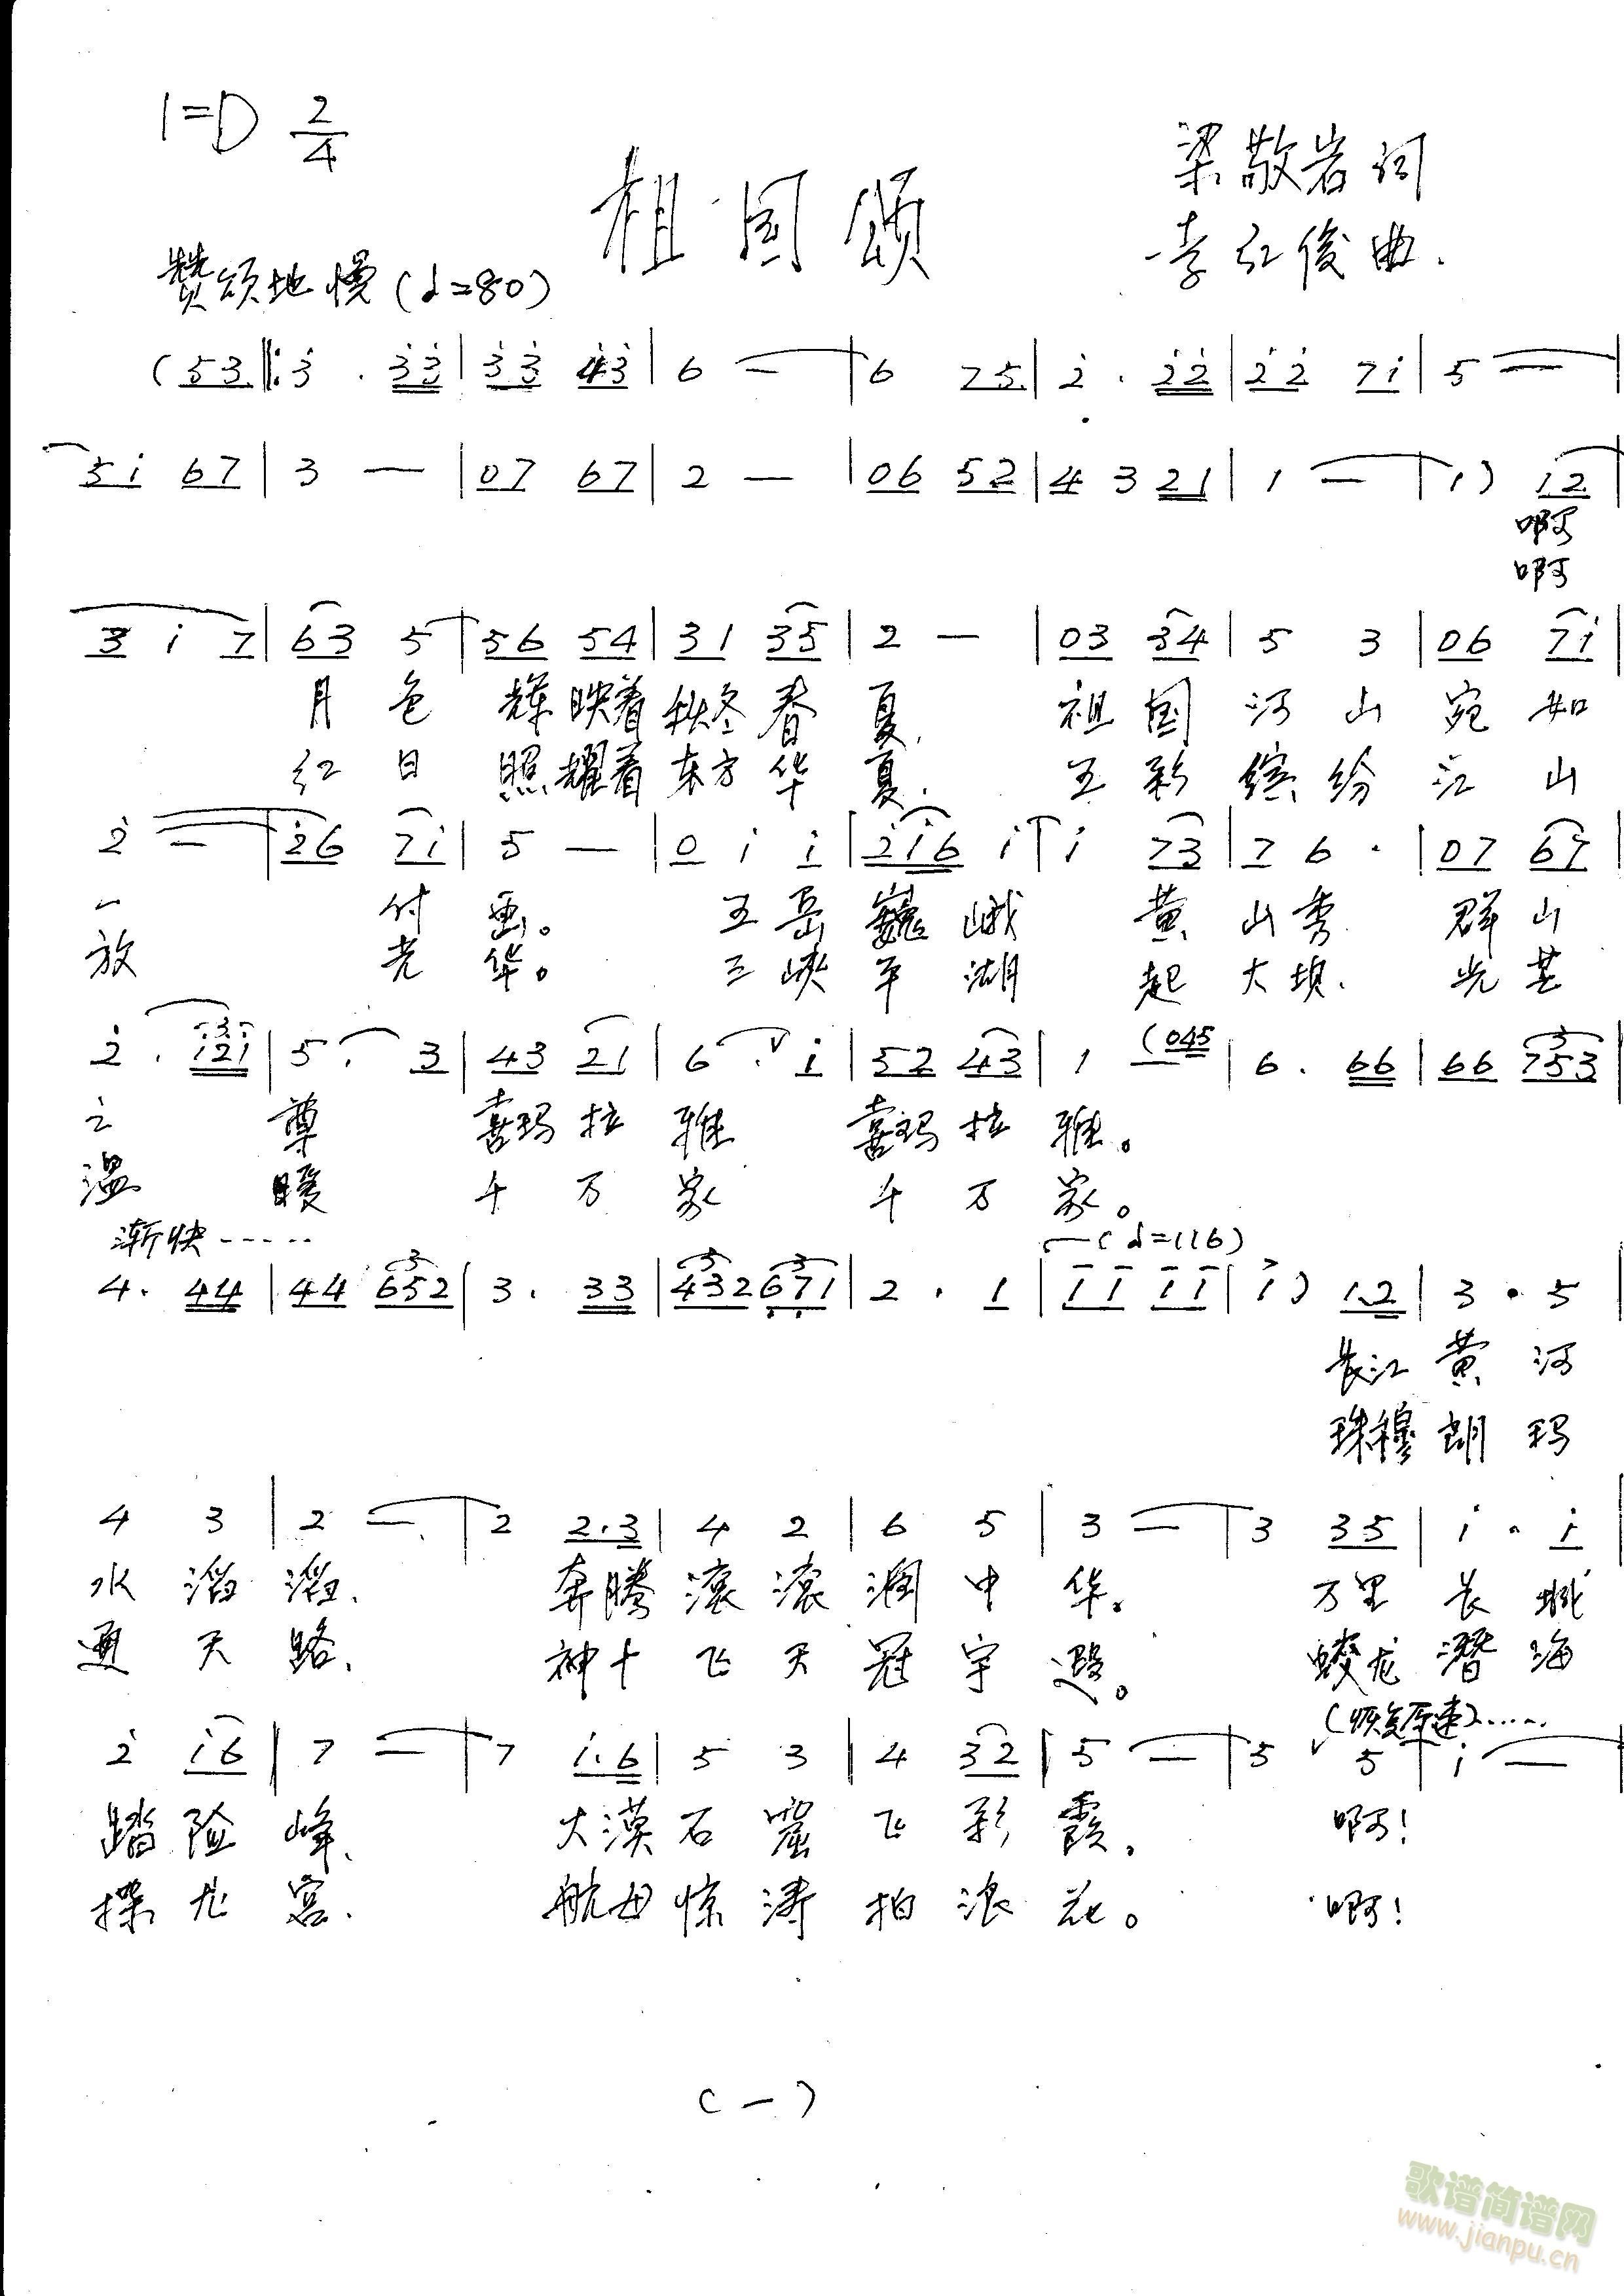 1=D 2/4
祖国颂
梁敬岩词
李红俊曲.
赞颂地慢(♩=80)
(53 ‖: 3̇ . 3̇3̇ | 3̇3̇ 4̇3̇ | 6 — | 6 75 | 2̇ . 2̇2̇ | 2̇2̇ 7i | 5 — |
5i 67 | 3 — | 07 67 | 2 — | 06 52 | 4 3 21 | 1 — | 1) 12 |
啊
啊
3 i 7 | 63 5 | 56 54 | 31 35 | 2 — | 03 34 | 5 3 | 06 7i |
月色 辉映着秋冬春夏. 祖国河山宛如
红日 照耀着东方华夏. 五彩缤纷江山
2̇ — | 2̇6 7i | 5 — | 0 i i | 2̇i6 i | i 73 | 7 6 . | 07 67 |
一付画。 五岳巍峨 黄山秀 群山
放光华。 三峡平湖 起大坝. 光芒
2̇ . i2̇i | 5 . 3 | 43 21 | 6 . i | 52 43 | 1 (045 | 6 . 66 | 66 753 |
之尊 喜玛拉雅 喜玛拉雅。
温暖 千万家 千万家。
渐快······
(♩=116)
4 . 44 | 44 652 | 3 . 33 | 432 671 | 2 . 1 | 11 11 | i) 1.2 | 3 . 5 |
长江黄河
珠穆朗玛
4 3 | 2 — | 2 2.3 | 4 2 | 6 5 | 3 — | 3 35 | i . i |
水滔滔. 奔腾滚滚润中华。 万里长城
通天路. 神十飞天冠宇遐。 蛟龙潜海
(恢复原速)······
2̇ i6 | 7 — | 7 i.6 | 5 3 | 4 32 | 5 — | 5 5 | i — |
踏险峰. 大漠石窟飞彩霞. 啊!
探龙宫. 航母惊涛拍浪花。 啊!
(一)
歌谱简谱网
www.jianpu.cn